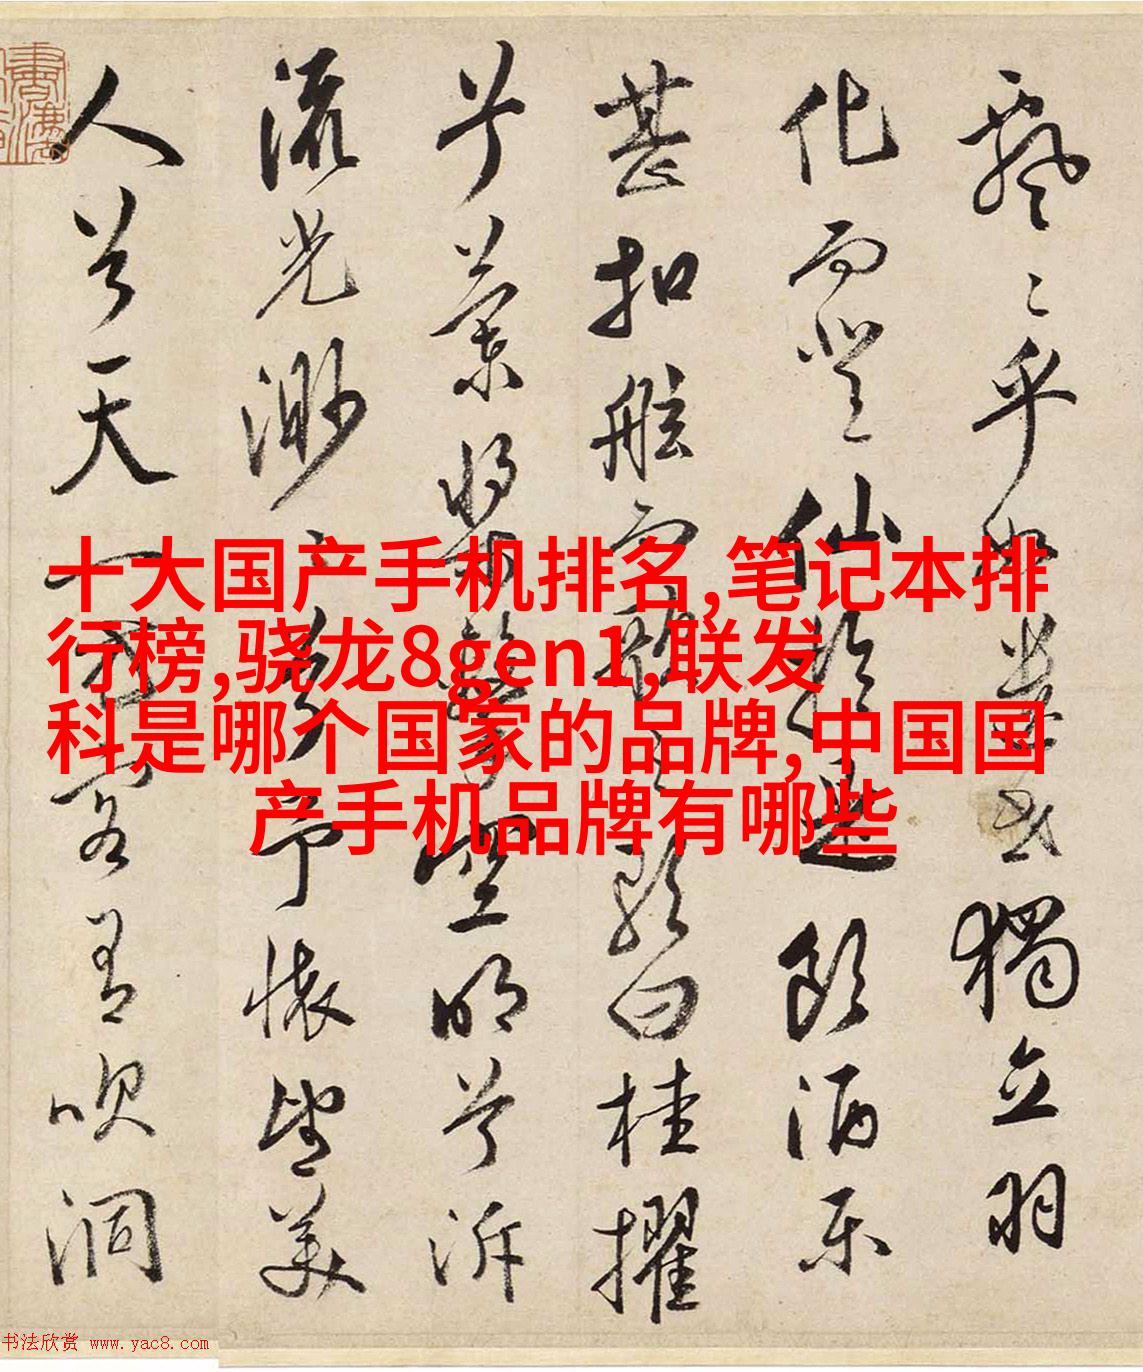 飘飘乎如遗世独立羽
化而登仙于是饮酒乐
甚扣舷而歌之歌曰桂櫂
兮兰桨击空明兮泝
流光渺渺兮予怀望美
人兮天一方客有吹洞
十大国产手机排名,笔记本排
行榜,骁龙8gen1,联发
科是哪个国家的品牌,中国国
产手机品牌有哪些
书法欣赏 www.yac8.com